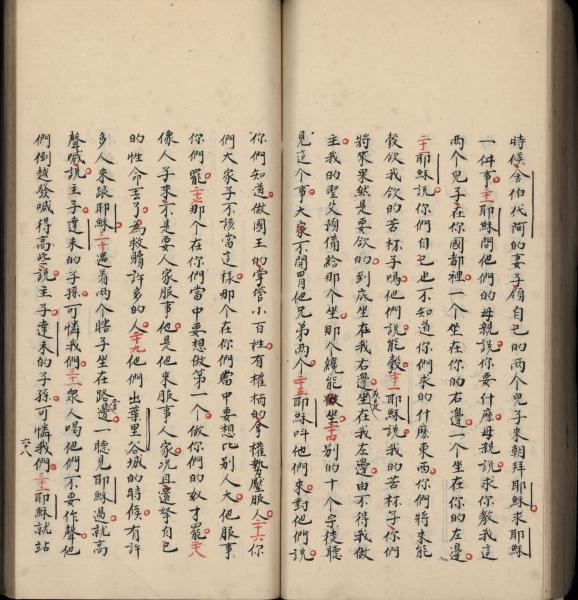 時候舍伯代阿的妻子領自己的两个兒子來朝拜耶穌求耶穌
一件事二十一耶穌問他們的母親說你要什庅母親說求你教我這
两个兒子在你國都裡一个坐在你的右邊一个坐在你的左邊
二十二耶穌說你們自己也不知道你們求的什庅東西你們將來能
彀飲我飲的苦杯子嗎他們說能彀二十三耶穌說我的苦杯子你們
將來果然是要飲的到底坐在我右邊坐在我左邊由不得我做
主我的聖父預備給那个坐那个纔能坐二十四別的十个宗徒聽
見這个事大家不開
他兄弟两个二十五耶穌呌他們來對他們說
你們知道做國王的掌管小百姓有權柄的拿權勢壓服人二十六你
們大家子不該當這樣那个在你們當中要想比别人大他服事
你們罷二十七那个在你們當中要想做第一个做你們的奴才罷二十八
像人子來不是要人家服事他是他來服事人家况且還努自已
的性命丢了為救贖許多的人二十九他們出葉里谷城的時候有許
多人來跟耶穌三十遇着两个瞎子坐在路邊一聴見耶穌過就高
聲喊說主子達未的子孫可憐我們三十一衆人喝他們不要作聲他
們倒越發喊得高些說主子達未的子孫可憐我們三十二耶穌就站
六八